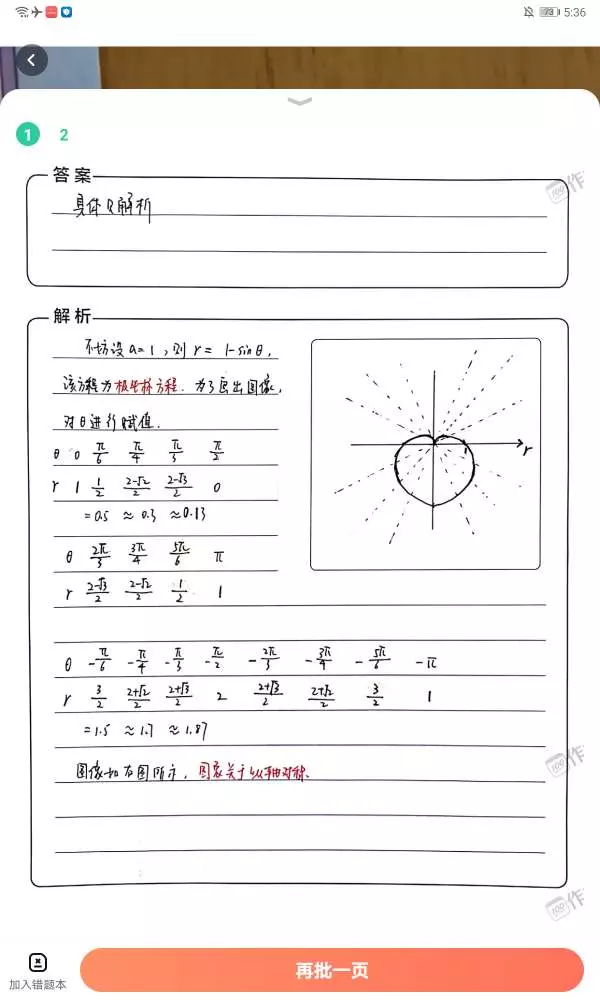 73 5:36
1 2
答案
具体见解析
解析
不妨设 a=1，则 r = 1-sinθ，
该方程为极坐标方程. 为了画出图像，
对θ进行赋值.
θ 0 π/6 π/4 π/3 π/2
r 1 1/2 (2-√2)/2 (2-√3)/2 0
=0.5 ≈0.3 ≈0.13
θ 2π/3 3π/4 5π/6 π
r (2-√3)/2 (2-√2)/2 1/2 1
1 r
θ -π/6 -π/4 -π/3 -π/2 -2π/3 -3π/4 -5π/6 -π
r 3/2 (2+√2)/2 (2+√3)/2 2 (2+√3)/2 (2+√2)/2 3/2 1
=1.5 ≈1.7 ≈1.87
图像如右图所示，图象关于y轴对称.
作
作
作
加入错题本
再批一页